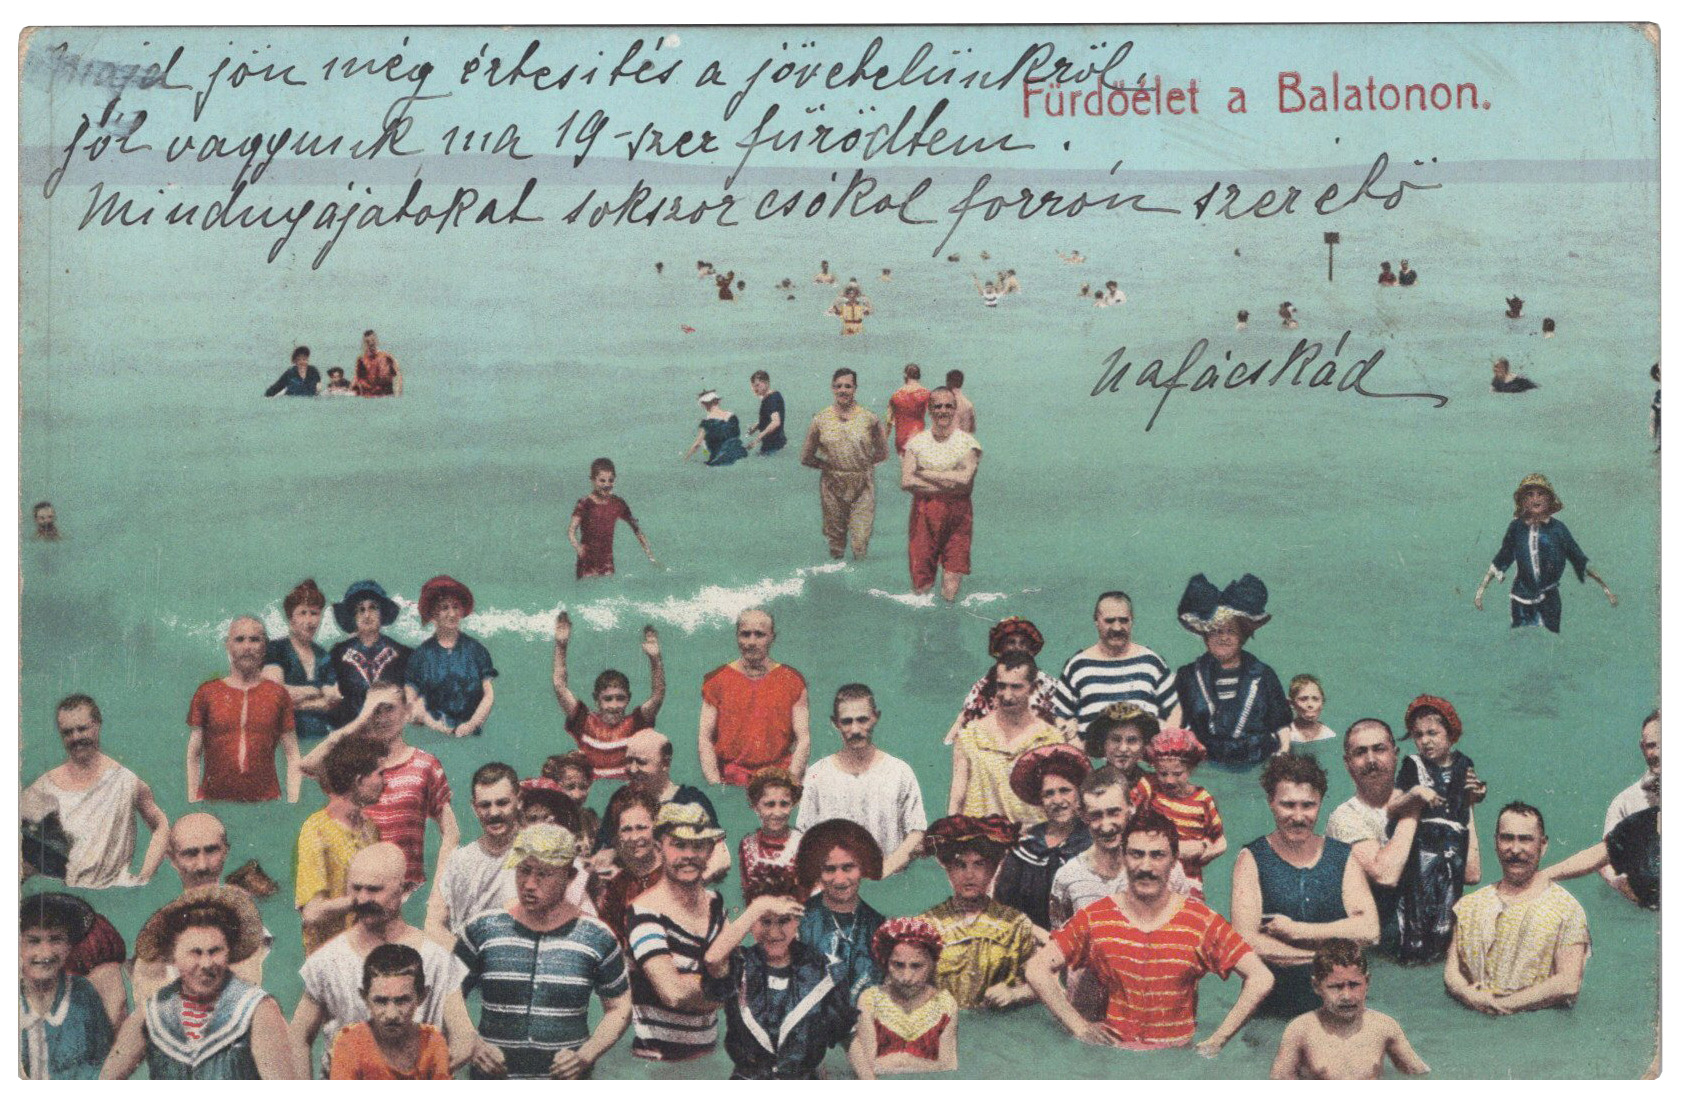 Majd jön még értesités a jövetelünkről,
Fürdőélet a Balatonon.
jól vagyunk ma 19-szer fürödtem.
Mindnyájatokat sokszor csókol forrón szerető